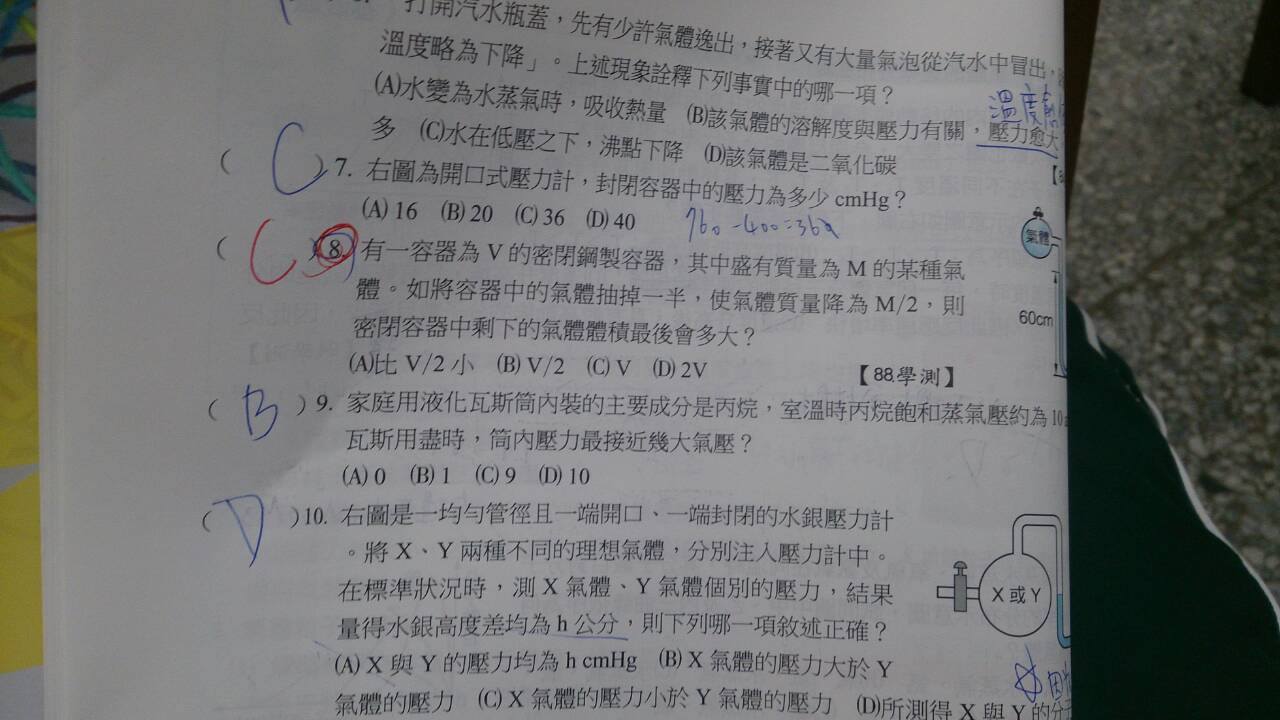 打開汽水瓶蓋，先有少許氣體逸出，接著又有大量氣泡從汽水中冒出，
溫度略為下降」。上述現象詮釋下列事實中的哪一項？
(A)水變為水蒸氣時，吸收熱量 (B)該氣體的溶解度與壓力有關，壓力愈大
溫度
多 (C)水在低壓之下，沸點下降 (D)該氣體是二氧化碳
( C ) 7. 右圖為開口式壓力計，封閉容器中的壓力為多少 cmHg？
(A) 16 (B) 20 (C) 36 (D) 40
760-400=360
氣體
60cm
( C ) 8. 有一容器為 V 的密閉鋼製容器，其中盛有質量為 M 的某種氣
體。如將容器中的氣體抽掉一半，使氣體質量降為 M/2，則
密閉容器中剩下的氣體體積最後會多大？
(A)比 V/2 小 (B) V/2 (C) V (D) 2V 【88.學測】
( B ) 9. 家庭用液化瓦斯筒內裝的主要成分是丙烷，室溫時丙烷飽和蒸氣壓約為 10
瓦斯用盡時，筒內壓力最接近幾大氣壓？
(A) 0 (B) 1 (C) 9 (D) 10
( D ) 10. 右圖是一均勻管徑且一端開口、一端封閉的水銀壓力計
。將 X、Y 兩種不同的理想氣體，分別注入壓力計中。
在標準狀況時，測 X 氣體、Y 氣體個別的壓力，結果
量得水銀高度差均為 h 公分，則下列哪一項敘述正確？
X 或 Y
(A) X 與 Y 的壓力均為 h cmHg (B) X 氣體的壓力大於 Y
氣體的壓力 (C) X 氣體的壓力小於 Y 氣體的壓力 (D)所測得 X 與 Y 的分